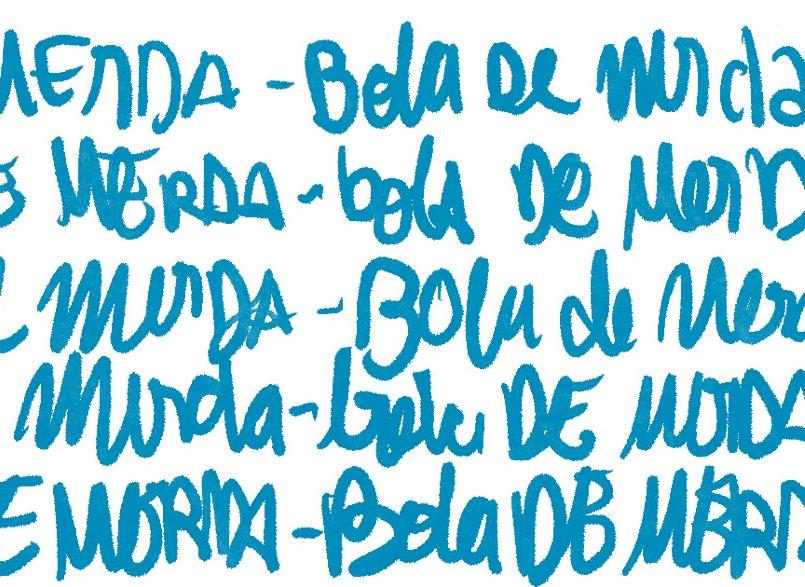 MERDA - Bola De merda
E MERDA - bola De Merd
e merDA - Bola de Merd
Merda - bola DE MERDA
E MERDA - Bola DE MERD